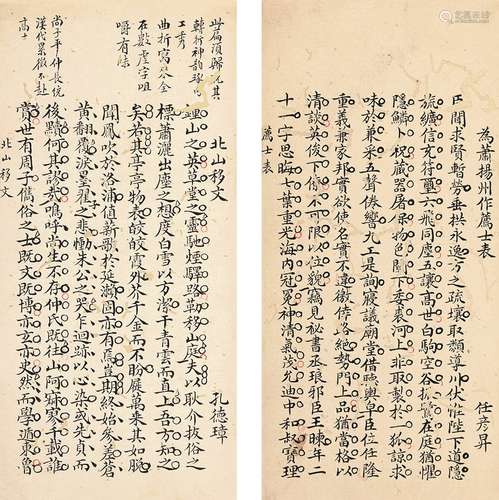 為蕭揚州作薦士表 任彥昇
臣聞求賢暫勞垂拱永逸方之疏壤取類導川伏惟陛下道隱
旒纊信充符璽六飛同塵五讓高世白駒空谷振鷺在庭猶懼
隱鱗卜祝藏器屠保物色關下委裘河上非取製於一狐諒求
味於兼采五聲倦響九工是詢寢議廟堂借聽輿皁臣位任隆
重義兼家邦實欲使名實不違徼倖路絕勢門上品猶當格以
清談英俊下僚不可限以位貌竊見祕書丞琅邪臣王暕年二
十一字思晦七葉重光海內冠冕神清氣茂允迪中和叔寶理
薦士表
北山移文 孔德璋
鍾山之英草堂之靈馳煙驛路勒移山庭夫以耿介拔俗之
標蕭灑出塵之想度白雪以方潔干青雲而直上吾方知之
矣若其亭亭物表皎皎霞外芥千金而不盼屣萬乘其如脫
聞鳳吹於洛浦值薪歌於延瀨固亦有焉豈期終始參差蒼
黃翻覆淚翟之悲慟朱公之哭乍迴跡以心染或先貞而
後黷何其謬哉嗚呼尚生不存仲氏既往山阿寂寥千載誰
賞世有周子雋俗之士既文既博亦玄亦史然而學遁東魯
北山移文
轉折神韻琢句
工秀
曲折寫
在數虛字咀
嚼有味
尚子平仲長統
漢代累徵不赴
高士